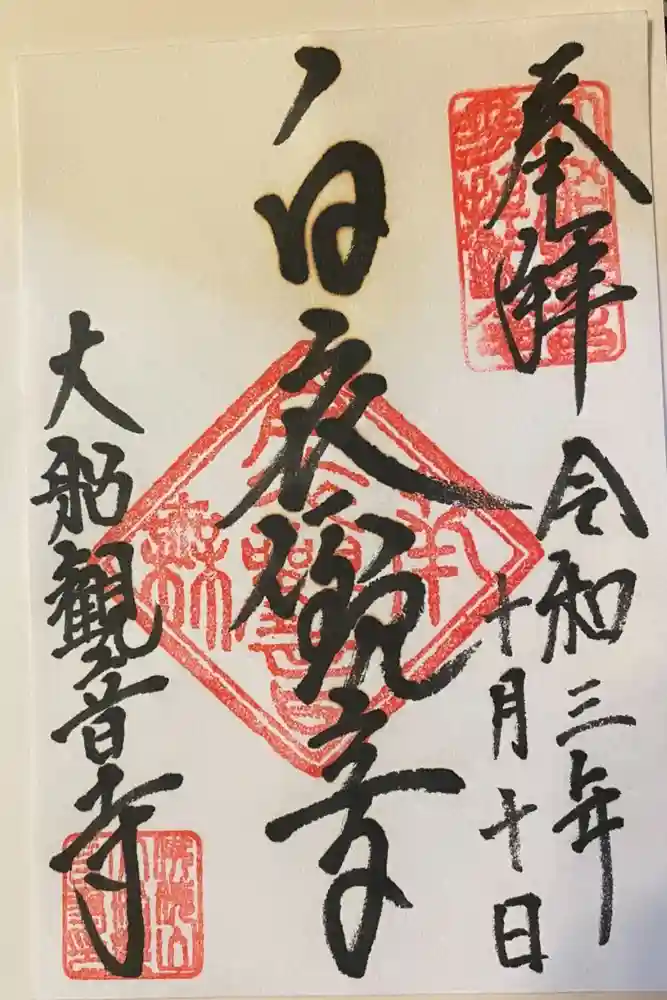 奉拝
令和三年
十月十日
白衣観音
大船観音寺